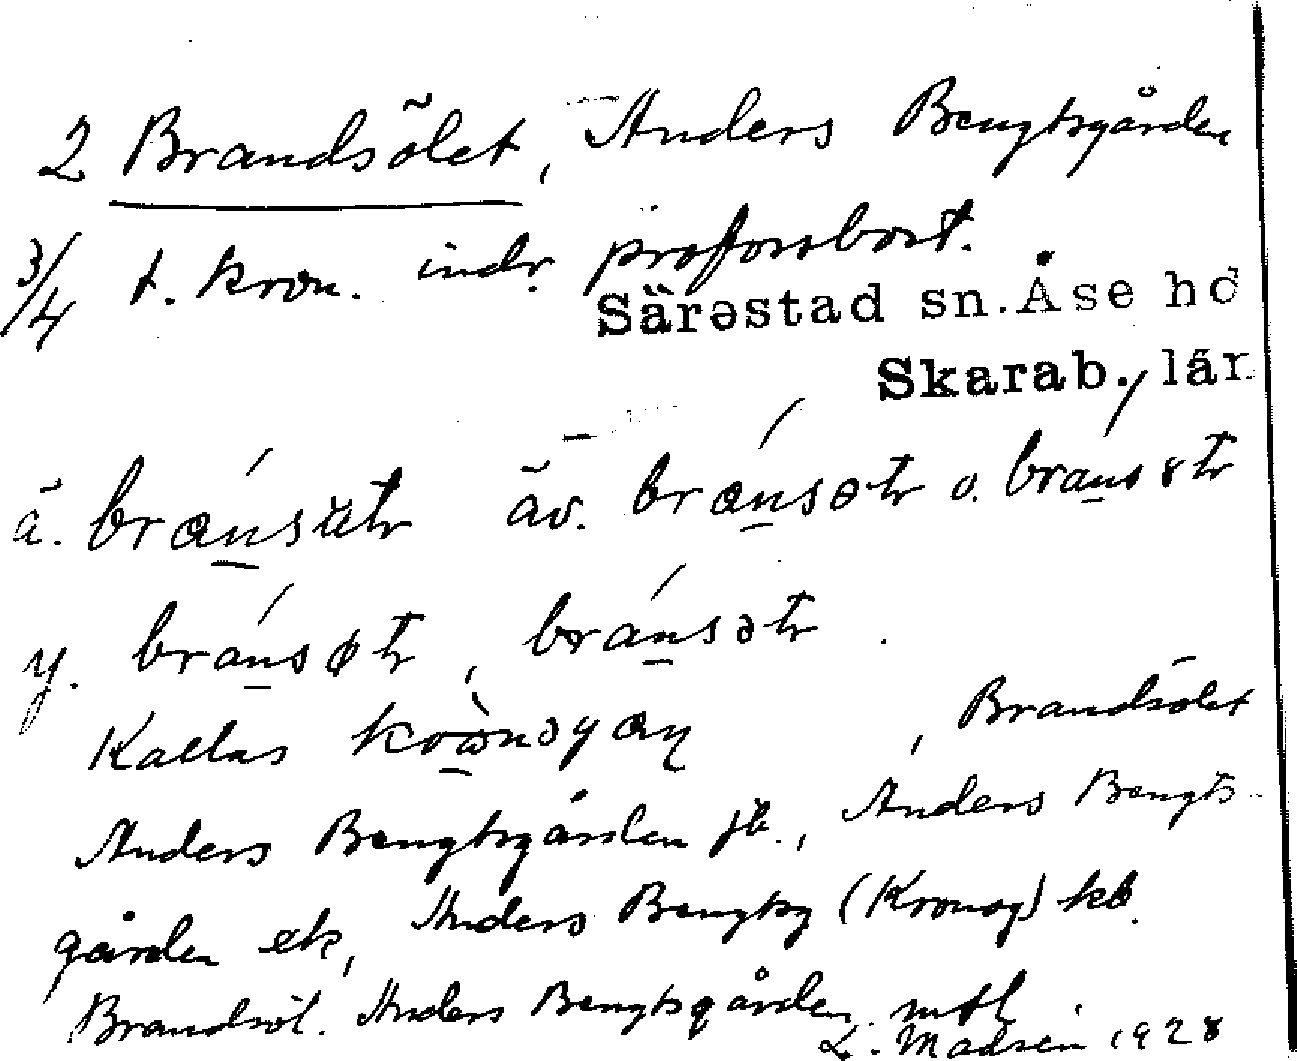 2 Brandsölet, Anders Bengtsgården
3/4 t. kron. indr. profossbost.
Särestad sn. Åse hd
Skarab. län
ä. brænsätr äv. brænsətr o. bránsätr
y. bránsøtr, bránsətr.
Kallas
, Brandsölet
Anders Bengtsgården jb., Anders Bengts-
gården ek, Anders Bengtsg (Kronog) kb.
Brandsöl. Anders Bengtsgården mtl
L. Madsén 1928